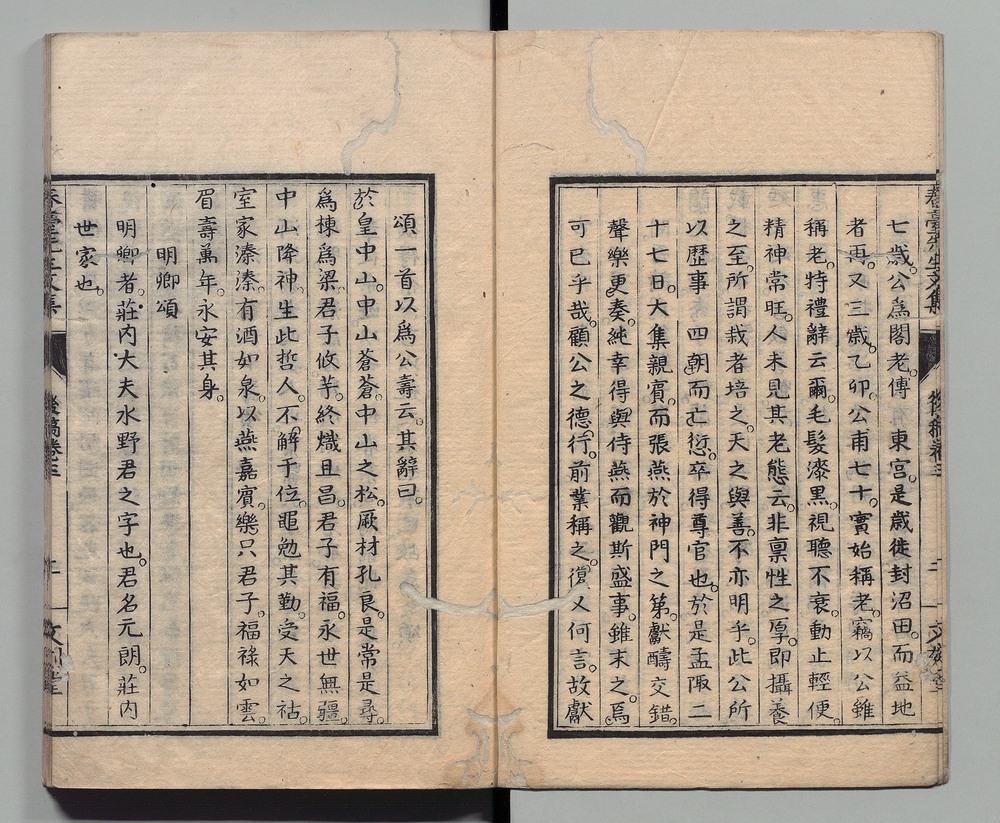 七歳。公爲閣老。傅　東宮。是歳徙封沼田。而益地
者再。又三歳。乙卯。公甫七十。實始稱老。竊以公雖
稱老。特禮辭云爾。毛髮漆黒。視聽不衰。動止輕便。
精神常旺。人未見其老態云。非禀性之厚。即攝養
之至。所謂栽者培之。天之與善。不亦明乎。此公所
以歴事　四朝。而亡愆。卒得尊官也。於是孟陬二
十七日。大集親賓。而張燕於神門之第。獻醻交錯。
聲樂更奏。純幸得與侍燕而觀斯盛事。雖末之。焉
可已乎哉。顧公之德行。前業稱之。復又何言。故獻
頌一首以爲公壽云。其辭曰。
於皇中山。中山蒼蒼。中山之松。厥材孔良。是常是尋。
爲棟爲梁。君子攸芋。終熾且昌。君子有福。永世無疆。
中山降神。生此哲人。不解于位。黽勉其勤。受天之祜。
室家溱溱。有酒如泉。以燕嘉賓。樂只君子。福祿如雲。
眉壽萬年。永安其身。
明卿頌
明卿者。莊内大夫水野君之字也。君名元朗。莊内
世家也。
後稿卷三